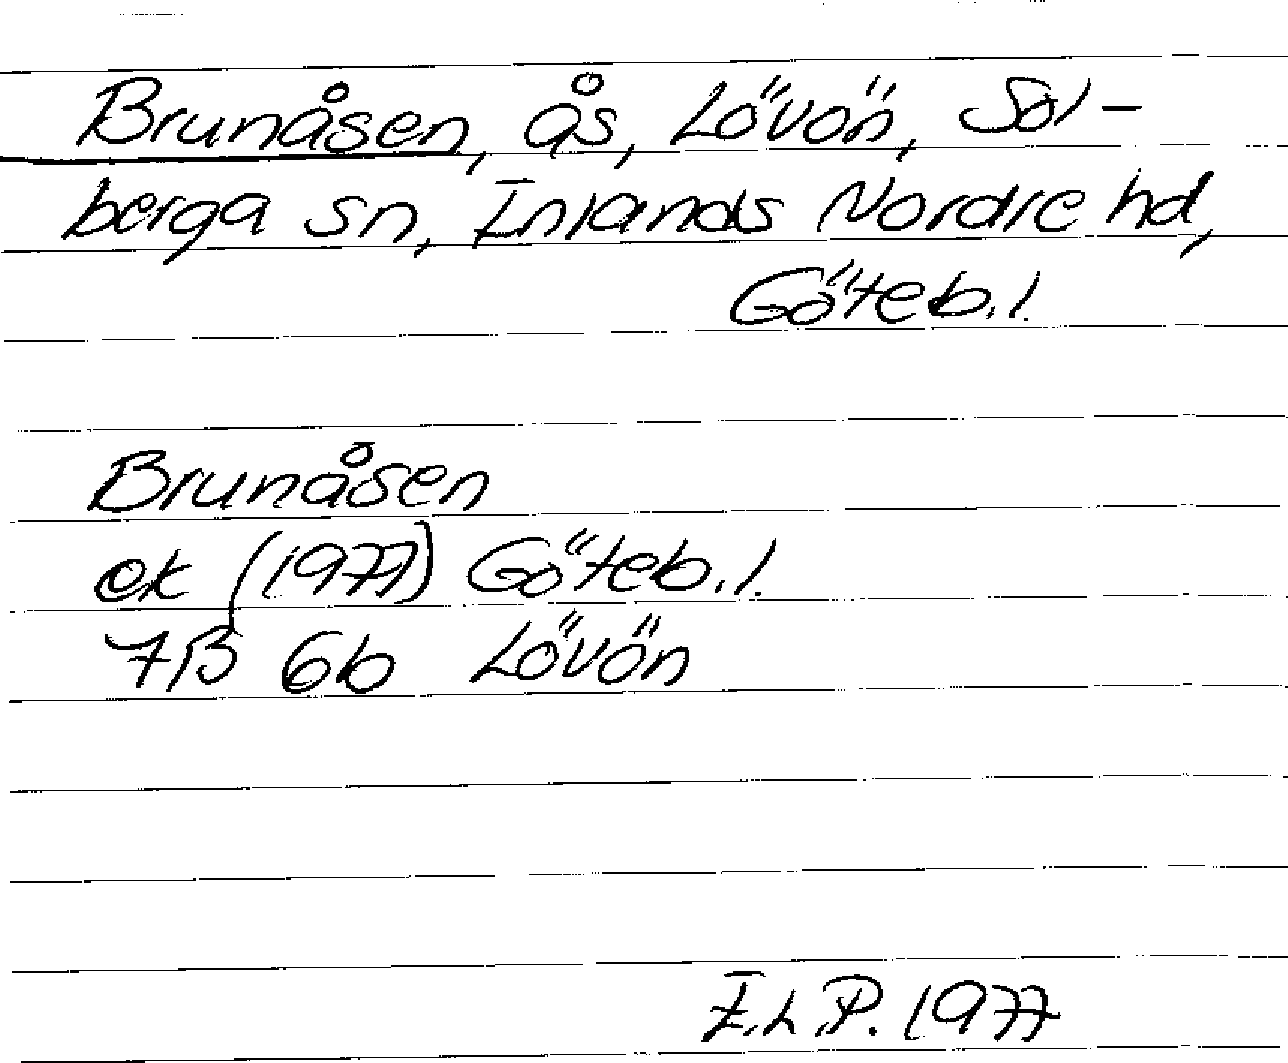 Brunåsen, ås, Lövön, Sol-
berga sn, Inlands Nordre hd,
Göteb. l.
Brunåsen
ek (1977) Göteb. l.
7B 6b Lövön
I.L.P. 1977